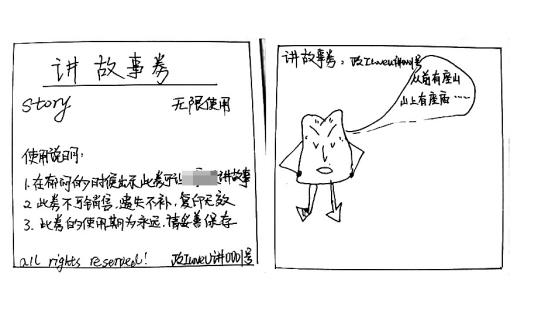 讲故事券
story 无限使用
使用说明:
1.在有问的时候出示此券可让 讲故事
2.此券不可销售,遗失不补,复印无效
3.此券的使用期为永远,请妥善保存
all rights reserved! 政 讲0001号
讲故事券:政 讲0001号
从前有座山
山上有座庙……